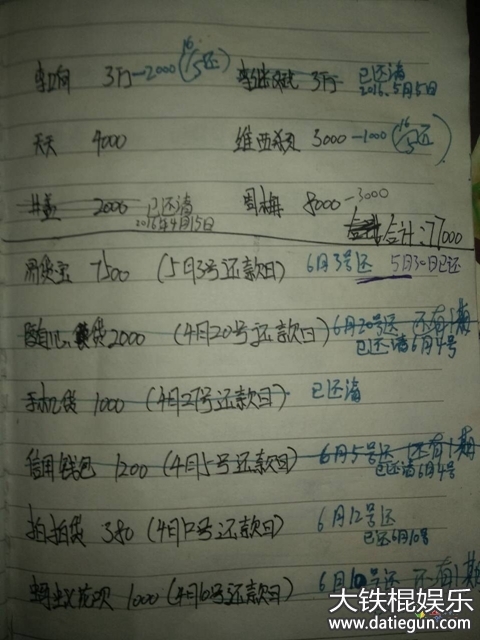 3万-2000(16/5还) 3万 已还清 2016.5月5日
天天 4000 维西 3000-1000(16/5还)
井盖 2000 已还清 2016年4月15日 周梅 8000-3000
合计:77000
用贷宝 7500 (5月3号还款日) 6月3号还 5月30日已还
随心贷 2000 (4月20号还款日) 6月20号还 还有1期 已还清6月4号
手机贷 1000 (4月27号还款日) 已还清
信用钱包 1200 (4月5号还款日) 6月5号还 还有1期 已还清6月4号
拍拍贷 380 (4月12号还款日) 6月12号还 已还6月10号
1000 (4月10号还款日) 6月10号还 还有1期
大铁棍娱乐
www.datiegun.com